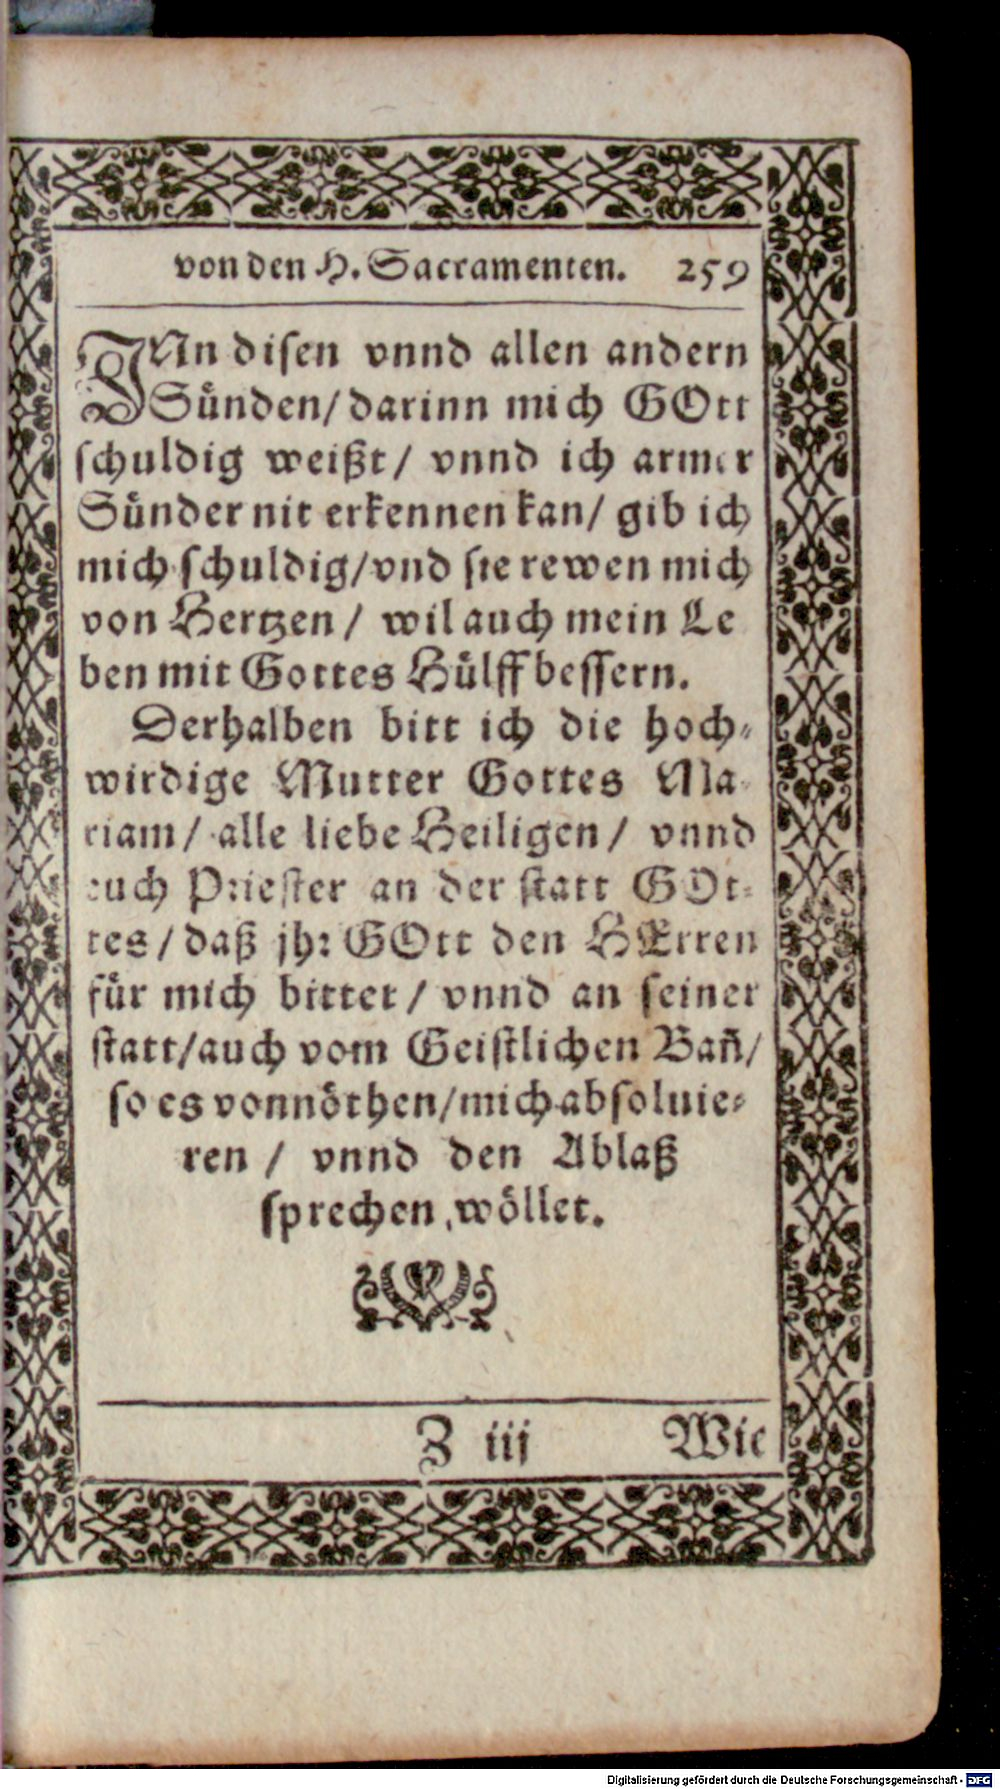 von den H. Sacramenten. 259
JNn disen vnnd allen andern
Sünden/ darinn mich GOtt
schuldig weißt/ vnnd ich armer
Sünder nit erkennen kan/ gib ich
mich schuldig/ vnd sie rewen mich
von Hertzen/ wil auch mein Le
ben mit Gottes Hülff bessern.
Derhalben bitt ich die hoch-
wirdige Mutter Gottes Ma-
riam/ alle liebe Heiligen/ vnnd
euch Priester an der statt GOt-
tes/ daß jhr GOtt den HErren
für mich bittet/ vnnd an seiner
statt/ auch vom Geistlichen Bañ/
so es vonnöthen/ mich absoluie-
ren/ vnnd den Ablaß
sprechen wöllet.
Z iij Wie
Digitalisierung gefördert durch die Deutsche Forschungsgemeinschaft - DFG